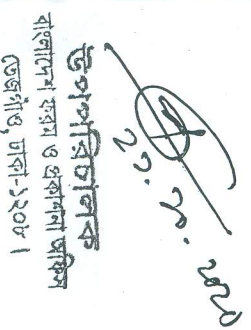 উপপরিচালক
বাংলাদেশ ফরম ও প্রকাশনা অফিস
তেজগাঁও, ঢাকা-১২০৮।